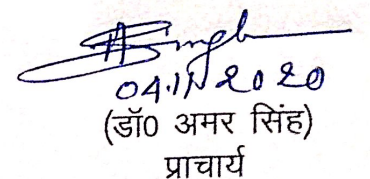 04.11.2020
(डॉ0 अमर सिंह)
प्राचार्य